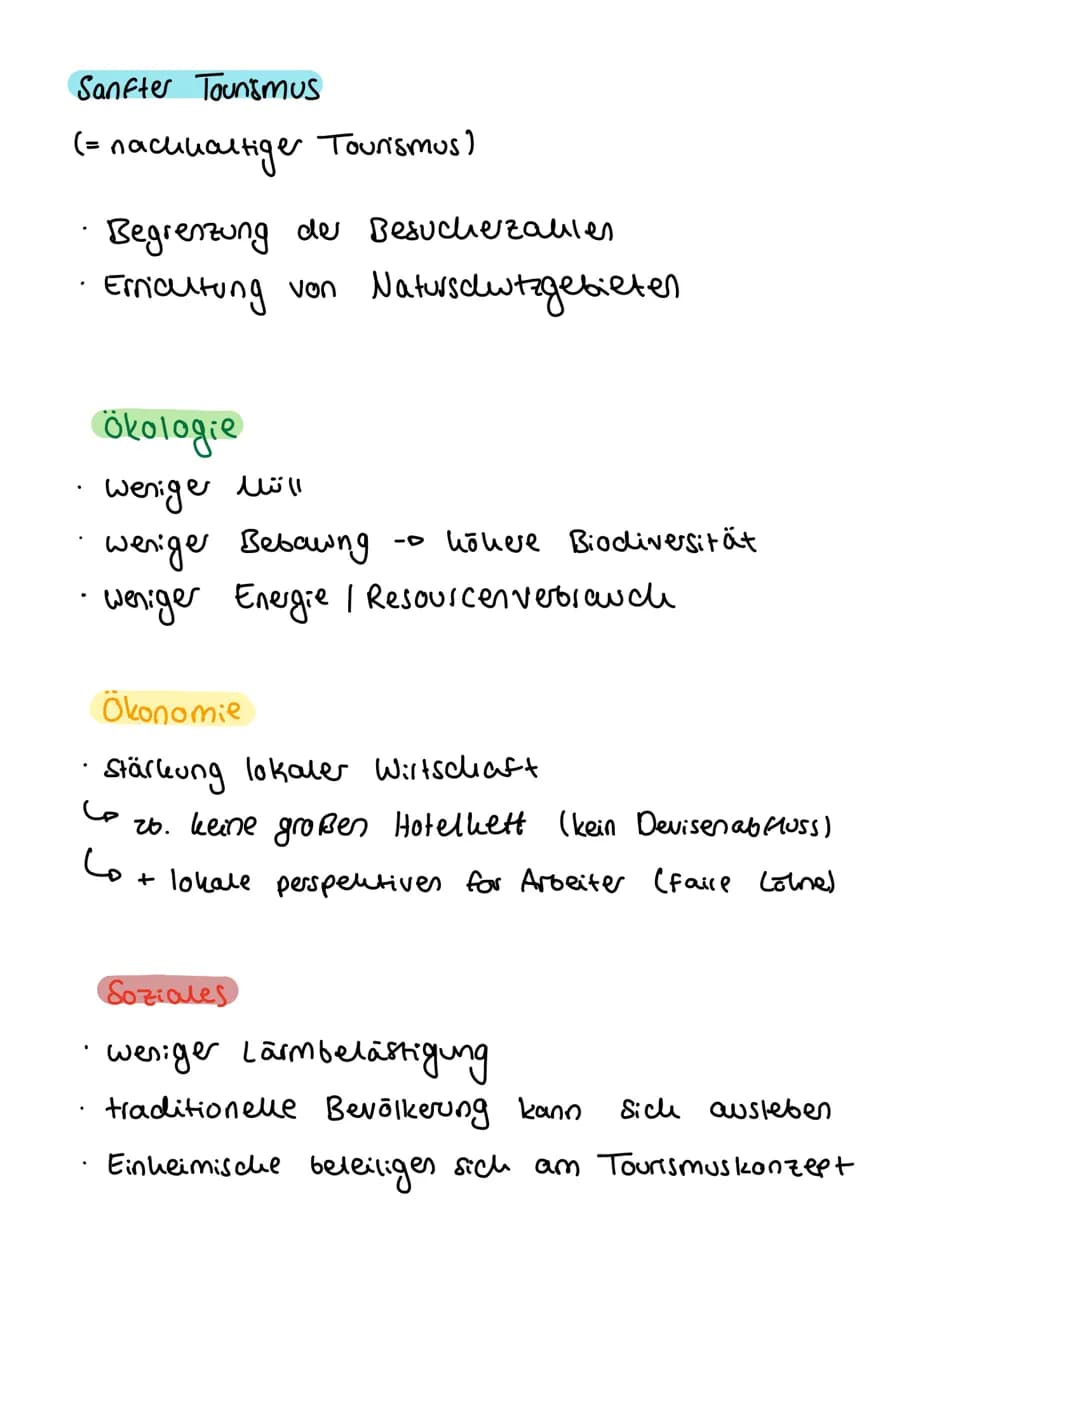 Sanfter Tourismus
(= nachhaltiger Tourismus)
· Begrenzung der Besucherzahlen
· Errichtung von Naturschutzgebieten
Ökologie
· weniger Müll
· weniger Bebauung → höhere Biodiversität
· weniger Energie / Resourcenverbrauch
Ökonomie
· Stärkung lokaler Wirtschaft
↳ zb. keine großen Hotelkett (kein Devisenabfluss)
↳ + lokale perspektiven for Arbeiter (faire Löhne)
Soziales
· weniger Lärmbelästigung
· traditionelle Bevölkerung kann sich ausleben
· Einheimische beteiligen sich am Tourismuskonzept